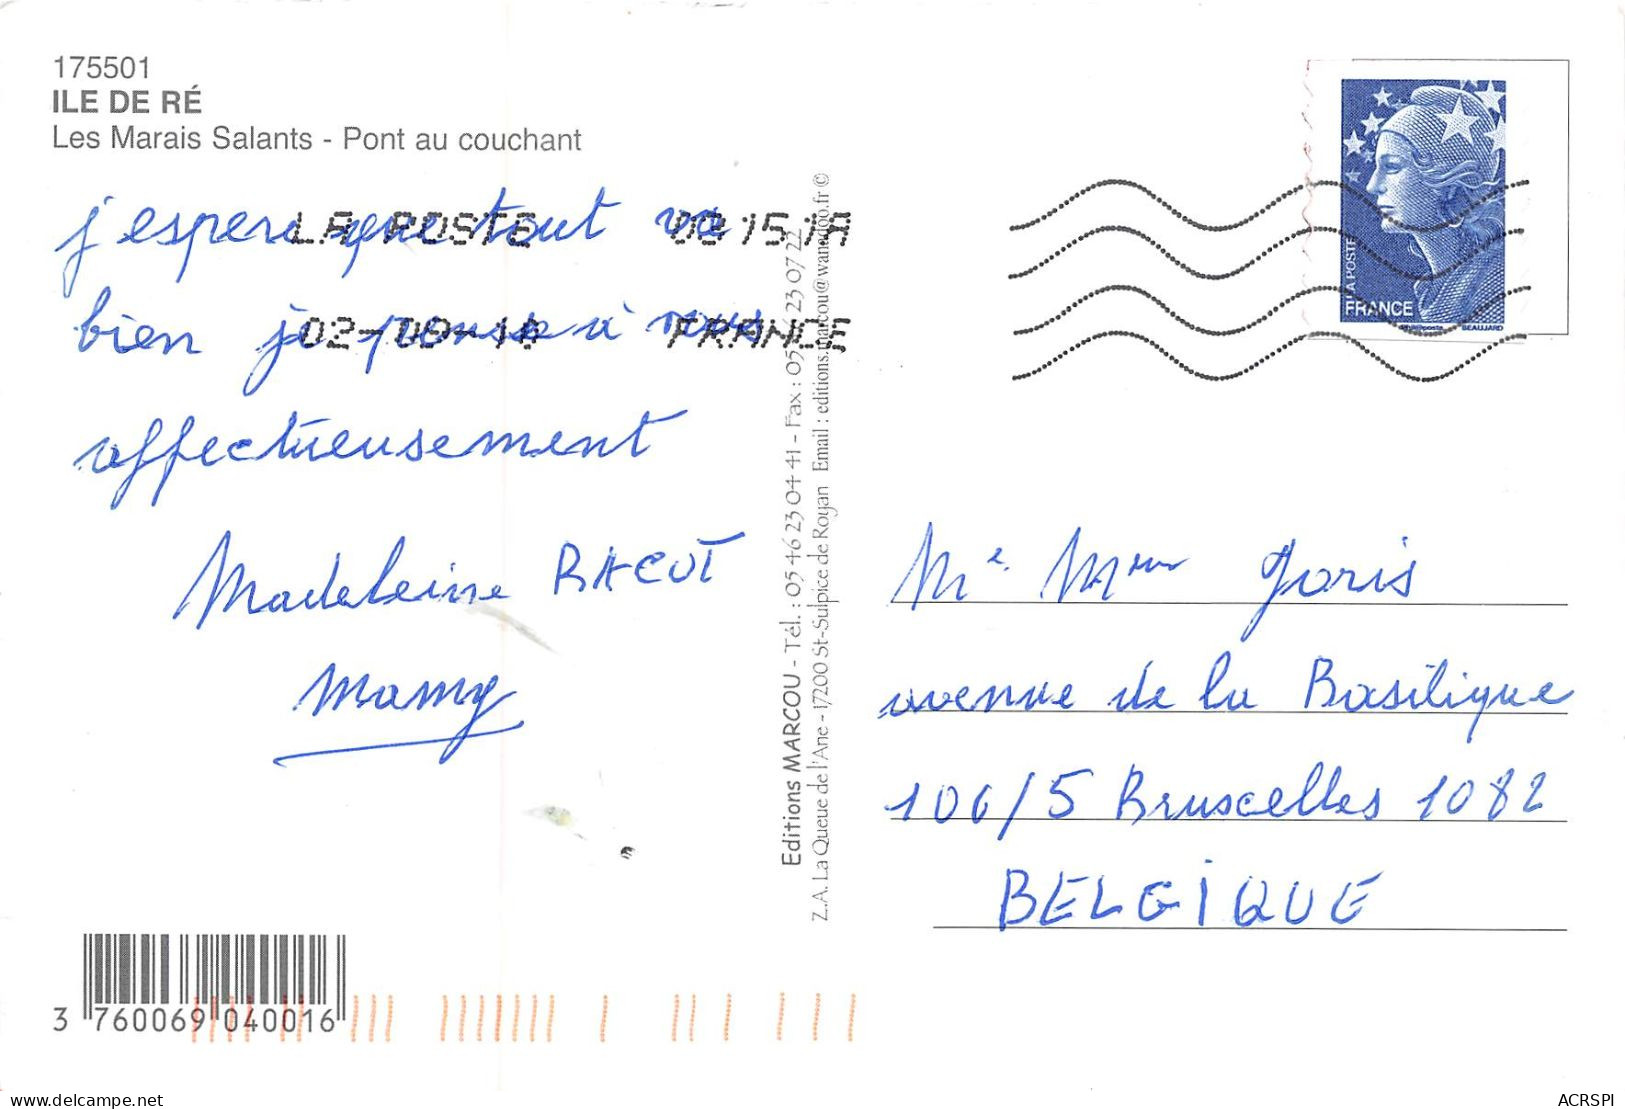 175501
ILE DE RÉ
Les Marais Salants - Pont au couchant
j'espere que tout va
bien je pense à vous
affectueusement
Madeleine RACUT
Mamy
LA POSTE
02-09-10 FRANCE
Editions MARCOU - Tél. : 05 46 23 04 41 - Fax : 05 23 07 22
Z.A. La Queue de l'Ane - 17200 St-Sulpice de Royan Email : editions.marcou@wanadoo.fr ©
LA POSTE
FRANCE
Phil@poste
BEAUJARD
Mr. Mme Goris
avenue de la Basilique
106/5 Bruscelles 1082
BELGIQUE
3 760069 040016
ACRSPI